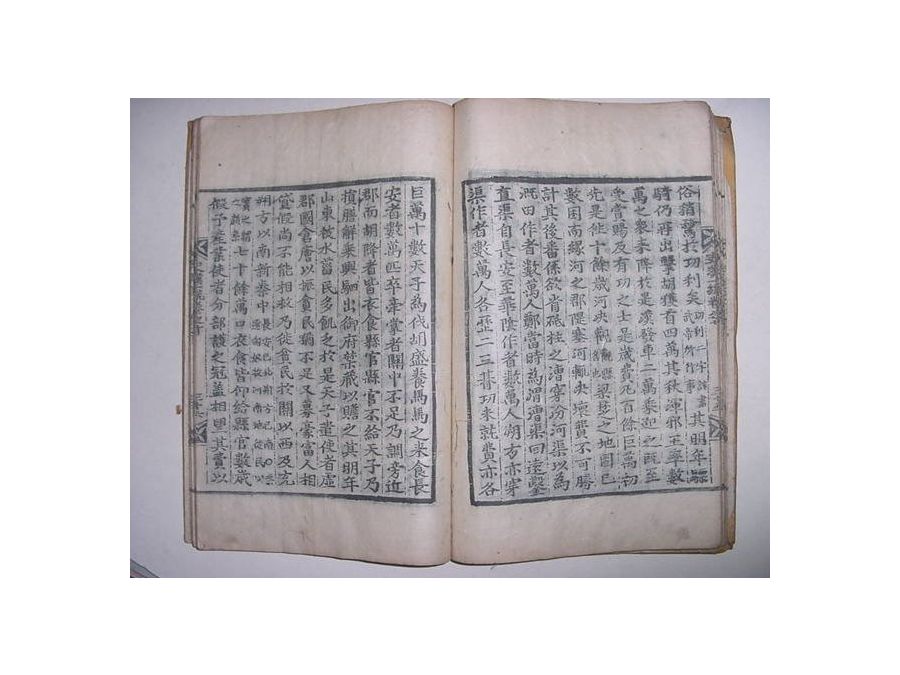 俗稍騖於功利矣功利二字該盡武帝所行事其明年驃
騎仍再出擊胡獲首四萬其秋渾邪王率數
萬之衆来降於是漢發車二萬乘迎之既至
受賞賜及有功之士是歲費凡百餘巨萬初
先是往十餘歲河決觀梁楚之地固已
數困而緣河之郡隄塞河輒決壞費不可勝
計其後番係欲省砥柱之漕穿汾河渠以為
溉田作者數萬人鄭當時為渭漕渠回遠鑿
直渠自長安至華陰作者數萬人朔方亦穿
渠作者數萬人各歷二三朞功未就費亦各
巨萬十數天子為伐胡盛養馬馬之来食長
安者數萬匹卒牽掌者關中不足乃調旁近
郡而胡降者皆衣食縣官縣官不給天子乃
損膳解乘輿駟出御府禁藏以贍之其明年
山東被水菑民多飢乏於是天子遣使者虛
郡國倉廥以振貧民猶不足又募豪富人相
貸假尚不能相救乃徙貧民於關以西及充
朔方以南新秦中七十餘萬口衣食皆仰給縣官數歲
假予產業使者分部護之冠蓋相望其費以